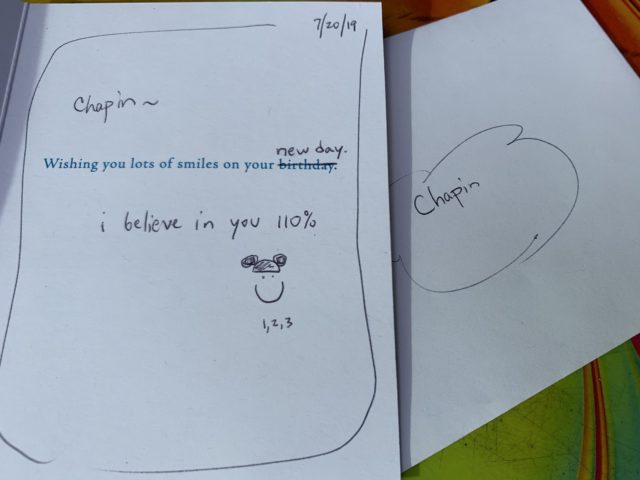 7/20/19
Chapin ~
new day.
Wishing you lots of smiles on your birthday.
i believe in you 110%
1,2,3
Chapin